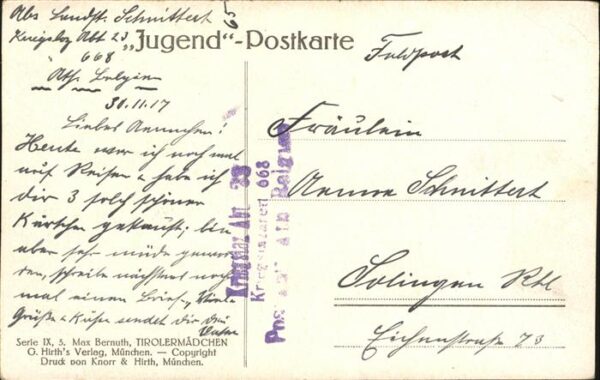 Abs Landst. Schnittert
Kriegslaz Abt 23
" 668
Ath. Belgien
30.11.17
"Jugend"-Postkarte
Feldpost
Liebes Aennchen!
Heute war ich noch mal
auf Reisen & habe ich
dir 3 solch schöne
Kärtchen gekauft; bin
aber sehr müde gewor
den, schreibe nächstens noch
mal einen Brief. Viele
Grüße & Küsse sendet dir dein
Vater
Fräulein
Aenne Schnittert
Solingen Rhl
Eichenstraße 73
Kriegslaz Abt. 23
Kriegslazarett 668
Ath Belgien
Serie IX, 5. Max Bernuth, TIROLERMÄDCHEN
G. Hirth's Verlag, München. — Copyright
Druck von Knorr & Hirth, München.